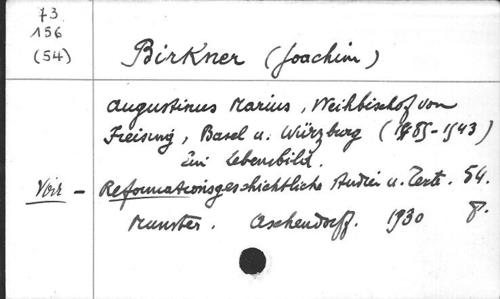 73
156
(54)
Birkner (Joachim)
Augustinus Marius, Weihbischof von
Freising, Basel u. Würzburg (1485-1543)
Ein Lebensbild.
Voir - Reformationsgeschichtliche Studien u. Texte. 54.
Munster. Aschendorff. 1930 8.